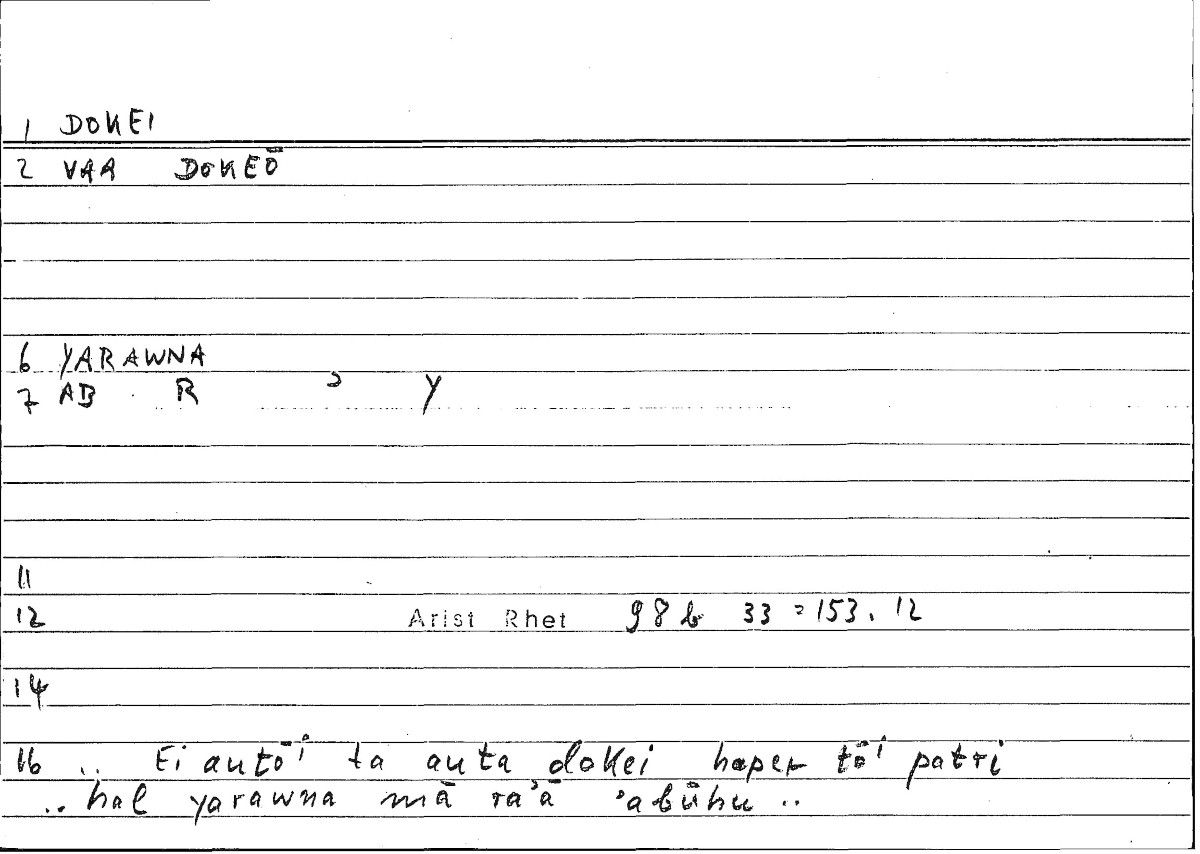 1 DOKEI
2 VAA DOKEŌ
6 YARAWNA
7 AB R ʾ Y
11
12 Arist Rhet 98b 33 = 153, 12
14
16 .. Ei autōⁱ ta auta dokei haper tōⁱ patri
.. hal yarawna mā raʾā ʾabūhu ..